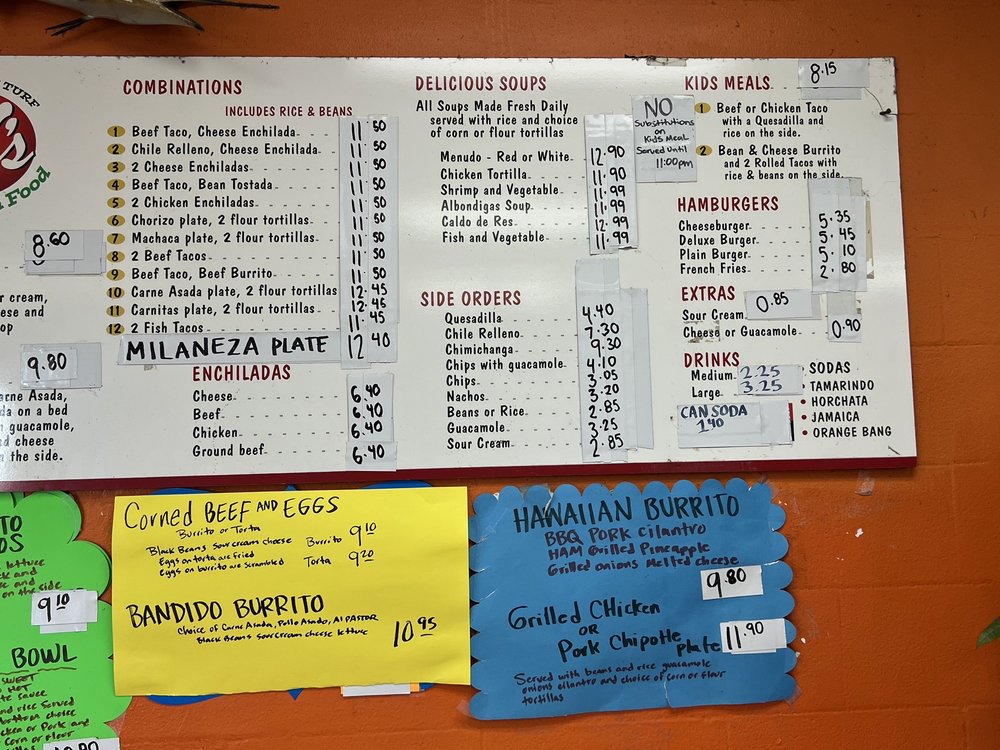 TURF
's
Food
8.60
r cream,
ese and
op
9.80
arne Asada,
da on a bed
guacamole,
d cheese
the side.
COMBINATIONS
INCLUDES RICE & BEANS
1 Beef Taco, Cheese Enchilada 11.50
2 Chile Relleno, Cheese Enchilada 11.50
3 2 Cheese Enchiladas 11.50
4 Beef Taco, Bean Tostada 11.50
5 2 Chicken Enchiladas 11.50
6 Chorizo plate, 2 flour tortillas 11.50
7 Machaca plate, 2 flour tortillas 11.50
8 2 Beef Tacos 11.50
9 Beef Taco, Beef Burrito 11.50
10 Carne Asada plate, 2 flour tortillas 12.45
11 Carnitas plate, 2 flour tortillas 12.45
12 2 Fish Tacos 11.45
MILANEZA PLATE 12.40
ENCHILADAS
Cheese 6.40
Beef 6.40
Chicken 6.40
Ground beef 6.40
DELICIOUS SOUPS
All Soups Made Fresh Daily
served with rice and choice
of corn or flour tortillas
Menudo - Red or White 12.90
Chicken Tortilla 11.90
Shrimp and Vegetable 11.99
Albondigas Soup 11.99
Caldo de Res 12.99
Fish and Vegetable 11.99
SIDE ORDERS
Quesadilla 4.40
Chile Relleno 7.30
Chimichanga 9.30
Chips with guacamole 4.10
Chips 3.05
Nachos 3.20
Beans or Rice 2.85
Guacamole 3.25
Sour Cream 2.85
NO
Substitutions
on
Kids Meal
Served Until
11:00pm
KIDS MEALS 8.15
1 Beef or Chicken Taco
with a Quesadilla and
rice on the side.
2 Bean & Cheese Burrito
and 2 Rolled Tacos with
rice & beans on the side.
HAMBURGERS
Cheeseburger 5.35
Deluxe Burger 5.45
Plain Burger 5.10
French Fries 2.80
EXTRAS
Sour Cream 0.85
Cheese or Guacamole 0.90
DRINKS
Medium 2.25
Large 3.25
CAN SODA
1.40
• SODAS
• TAMARINDO
• HORCHATA
• JAMAICA
• ORANGE BANG
TO
OS
lettuce
and
and
on the side
9.10
BOWL
SWEET
HOT
sauce
and rice served
bottom choice
or Pork and
Corn or Flour
Corned BEEF AND EGGS
Burrito or Torta
Black Beans sour cream cheese Burrito 9.10
Eggs on torta are fried
Eggs on burrito are scrambled Torta 9.20
BANDIDO BURRITO
Choice of Carne Asada, Pollo Asado, Al PASTOR
Black Beans sour cream cheese lettuce 10.95
HAWAIIAN BURRITO
BBQ PORK cilantro
HAM Grilled Pineapple
Grilled onions Melted cheese
9.80
Grilled CHicken
OR
Pork Chipotle plate 11.90
Served with beans and rice guacamole
onions cilantro and choice of corn or flour
tortillas